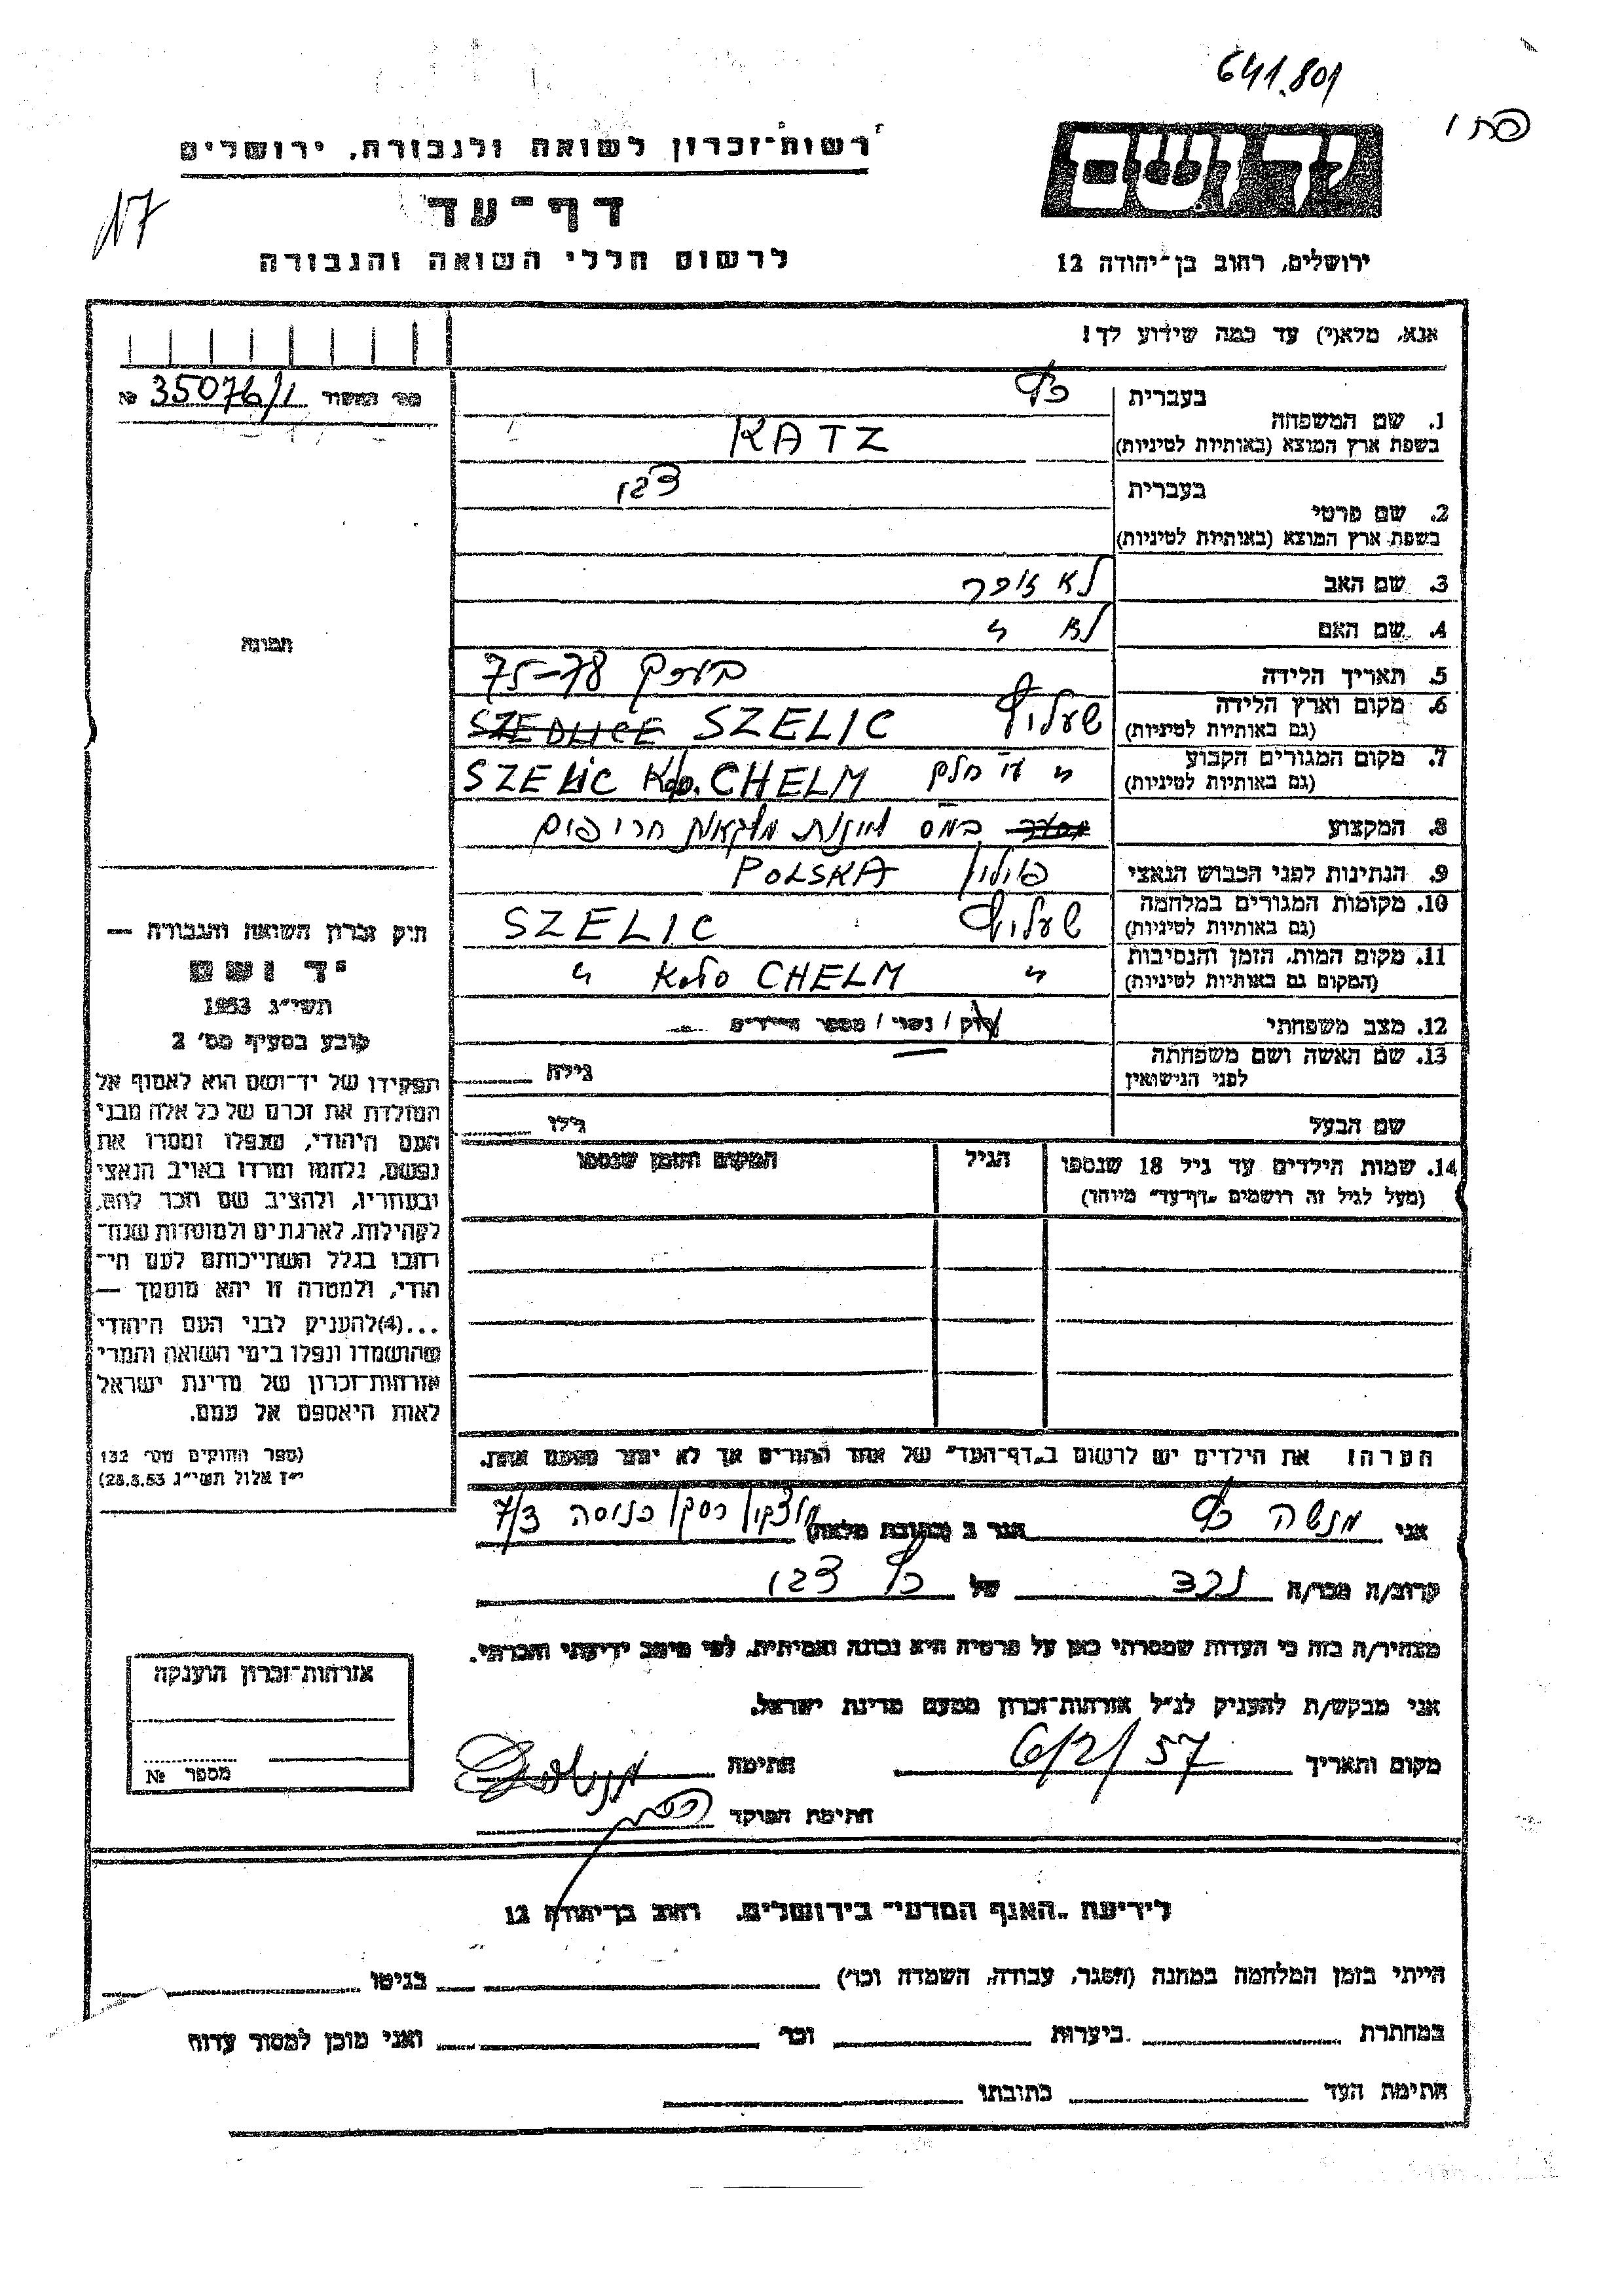 641.801
רשות־זכרון לשואה ולגבורה, ירושלים
דף־עד
לרשום חללי השואה והגבורה
יד ושם
ירושלים, רחוב בן־יהודה 12
אנא, מלא(י) עד כמה שידוע לך!
מס׳ № 35076/1
1. שם המשפחה
בעברית כץ
בשפת ארץ המוצא (באותיות לטיניות) KATZ
2. שם פרטי
בעברית
בשפת ארץ המוצא (באותיות לטיניות)
3. שם האב לא
4. שם האם לא "
5. תאריך הלידה בערך 75-78
6. מקום וארץ הלידה
(גם באותיות לטיניות) SZELIC SZEDLICE
7. מקום המגורים הקבוע
(גם באותיות לטיניות) " ע"י חלם SZELIC K/o. CHELM
8. המקצוע
9. הנתינות לפני הכבוש הנאצי פולין POLSKA
10. מקומות המגורים במלחמה
(גם באותיות לטיניות) SZELIC
11. מקום המות, הזמן והנסיבות
(המקום גם באותיות לטיניות) " CHELM "
12. מצב משפחתי רוק / נשוי / מספר הילדים
13. שם האשה ושם משפחתה
לפני הנישואין גילה
שם הבעל גילו
14. שמות הילדים עד גיל 18 שנספו הגיל המקום והזמן שנספו
(מעל לגיל זה רושמים „דף־עד” מיוחד)
תמונה
חוק זכרון השואה והגבורה —
יד ושם
תשי״ג 1953
קובע בסעיף מס׳ 2
תפקידו של יד־ושם הוא לאסוף אל
המולדת את זכרם של כל אלה מבני
העם היהודי, שנפלו ומסרו את
נפשם, נלחמו ומרדו באויב הנאצי
ובעוזריו, ולהציב שם וזכר להם,
לקהילות, לארגונים ולמוסדות שנח־
רבו בגלל השתייכותם לעם הי־
הודי, ולמטרה זו יהא מוסמך —
...(4) להעניק לבני העם היהודי
שהושמדו ונפלו בימי השואה והמרי
אזרחות־זכרון של מדינת ישראל
לאות היאספם אל עמם.
(ספר החוקים מס׳ 132
י״ז אלול תשי״ג 28.8.53)
הערה! את הילדים יש לרשום ב„דף־העד” של אחד ההורים אך לא יותר מפעם אחת.
אני מנשה כץ הגר ב (כתובת מלאה) כנוסה 7/3
קרוב/ה מכר/ה נכד של כץ
מצהיר/ה בזה כי העדות שמסרתי כאן על פרטיה היא נכונה ואמיתית, לפי מיטב ידיעתי והכרתי.
אני מבקש/ת להעניק לנ״ל אזרחות־זכרון מטעם מדינת ישראל.
מקום ותאריך 6/2/57 חתימה
חתימת הפוקד
אזרחות־זכרון הוענקה
מספר №
לידיעת „האגף המדעי” בירושלים, רחוב בן־יהודה 12
הייתי בזמן המלחמה במחנה (הסגר, עבודה, השמדה וכו׳) בגיטו
במחתרת ביערות וכו׳ ואני מוכן למסור עדות
חתימת העד כתובתו